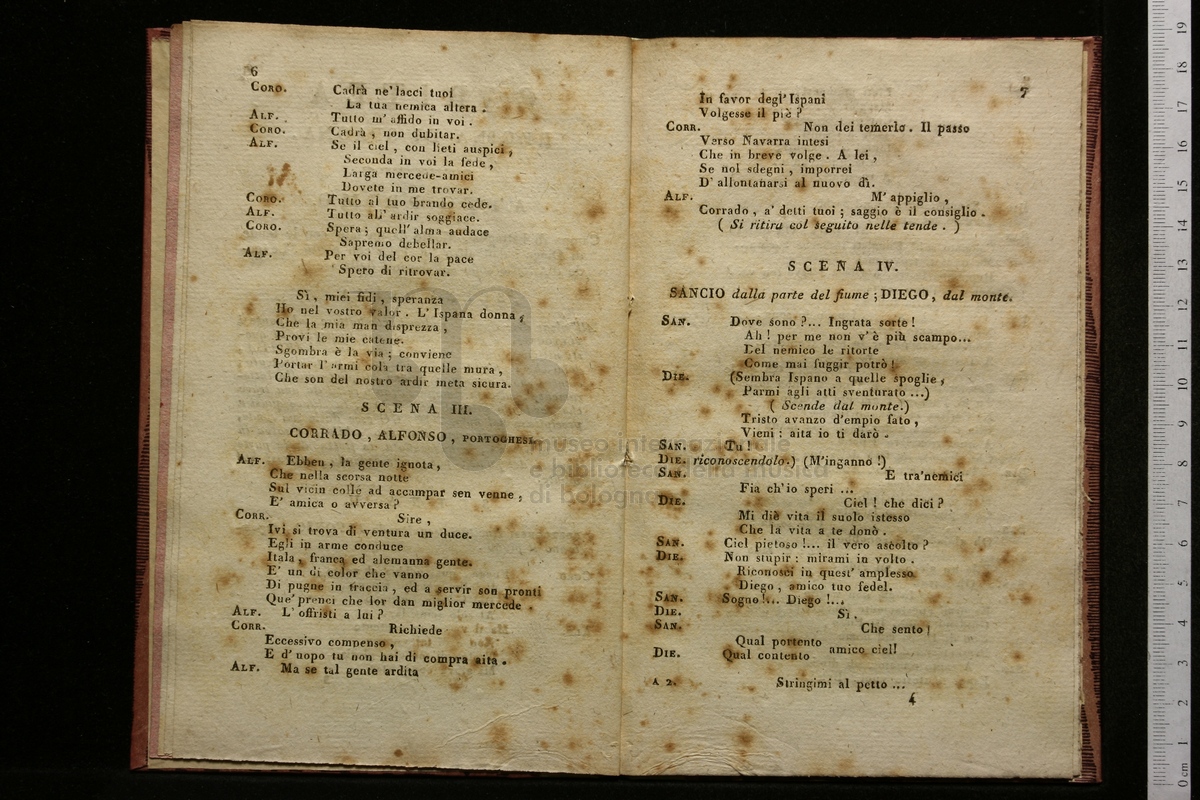 6
CORO. Cadrà ne' lacci tuoi
La tua nemica altera .
ALF. Tutto m' affido in voi .
CORO. Cadrà , non dubitar.
ALF. Se il ciel , con lieti auspici ,
Seconda in voi la fede ,
Larga mercede amici
Dovete in me trovar.
CORO. Tutto al tuo brando cede.
ALF. Tutto all' ardir soggiace.
CORO. Spera ; quell' alma audace
Sapremo debellar.
ALF. Per voi del cor la pace
Spero di ritrovar.
Sì , miei fidi , speranza
Ho nel vostro valor . L' Ispana donna ,
Che la mia man disprezza ,
Provi le mie catene.
Sgombra è la via ; conviene
Portar l' armi colà tra quelle mura ,
Che son del nostro ardir meta sicura.
SCENA III.
CORRADO , ALFONSO , PORTOGHESI.
ALF. Ebben , la gente ignota ,
Che nella scorsa notte
Sul vicin colle ad accampar sen venne ,
E' amica o avversa ?
CORR. Sire ,
Ivi si trova di ventura un duce.
Egli in arme conduce
Itala , franca ed alemanna gente.
E' un di color che vanno
Di pugne in traccia , ed a servir son pronti
Que' prenci che lor dan miglior mercede .
ALF. L' offristi a lui ?
CORR. Richiede
Eccessivo compenso ,
E d' uopo tu non hai di compra aita .
ALF. Ma se tal gente ardita
7
In favor degl' Ispani
Volgesse il piè ?
CORR. Non dei temerlo . Il passo
Verso Navarra intesi
Che in breve volge . A lei ,
Se nol sdegni , imporrei
D' allontanarsi al nuovo dì.
ALF. M' appiglio ,
Corrado , a' detti tuoi ; saggio è il consiglio .
( Si ritira col seguito nelle tende . )
SCENA IV.
SANCIO dalla parte del fiume ; DIEGO , dal monte.
SAN. Dove sono ?... Ingrata sorte !
Ah ! per me non v' è più scampo...
Del nemico le ritorte
Come mai fuggir potrò !
DIE. (Sembra Ispano a quelle spoglie ,
Parmi agli atti sventurato ...)
( Scende dal monte.)
Tristo avanzo d'empio fato ,
Vieni : aita io ti darò .
SAN. Tu !
DIE. riconoscendolo.) (M'inganno !)
SAN. E tra'nemici
Fia ch'io speri ...
DIE. Ciel ! che dici ?
Mi diè vita il suolo istesso
Che la vita a te donò .
SAN. Ciel pietoso !... il vero ascolto ?
DIE. Non stupir : mirami in volto .
Riconosci in quest' amplesso
Diego , amico tuo fedel.
SAN. Sogno !... Diego !...
DIE. Sì .
SAN. Che sento !
Qual portento
DIE. Qual contento amico ciel!
A 2. Stringimi al petto ...
4
museo internazionale
e biblioteca della musica
di bologna
0 cm 1 2 3 4 5 6 7 8 9 10 11 12 13 14 15 16 17 18 19